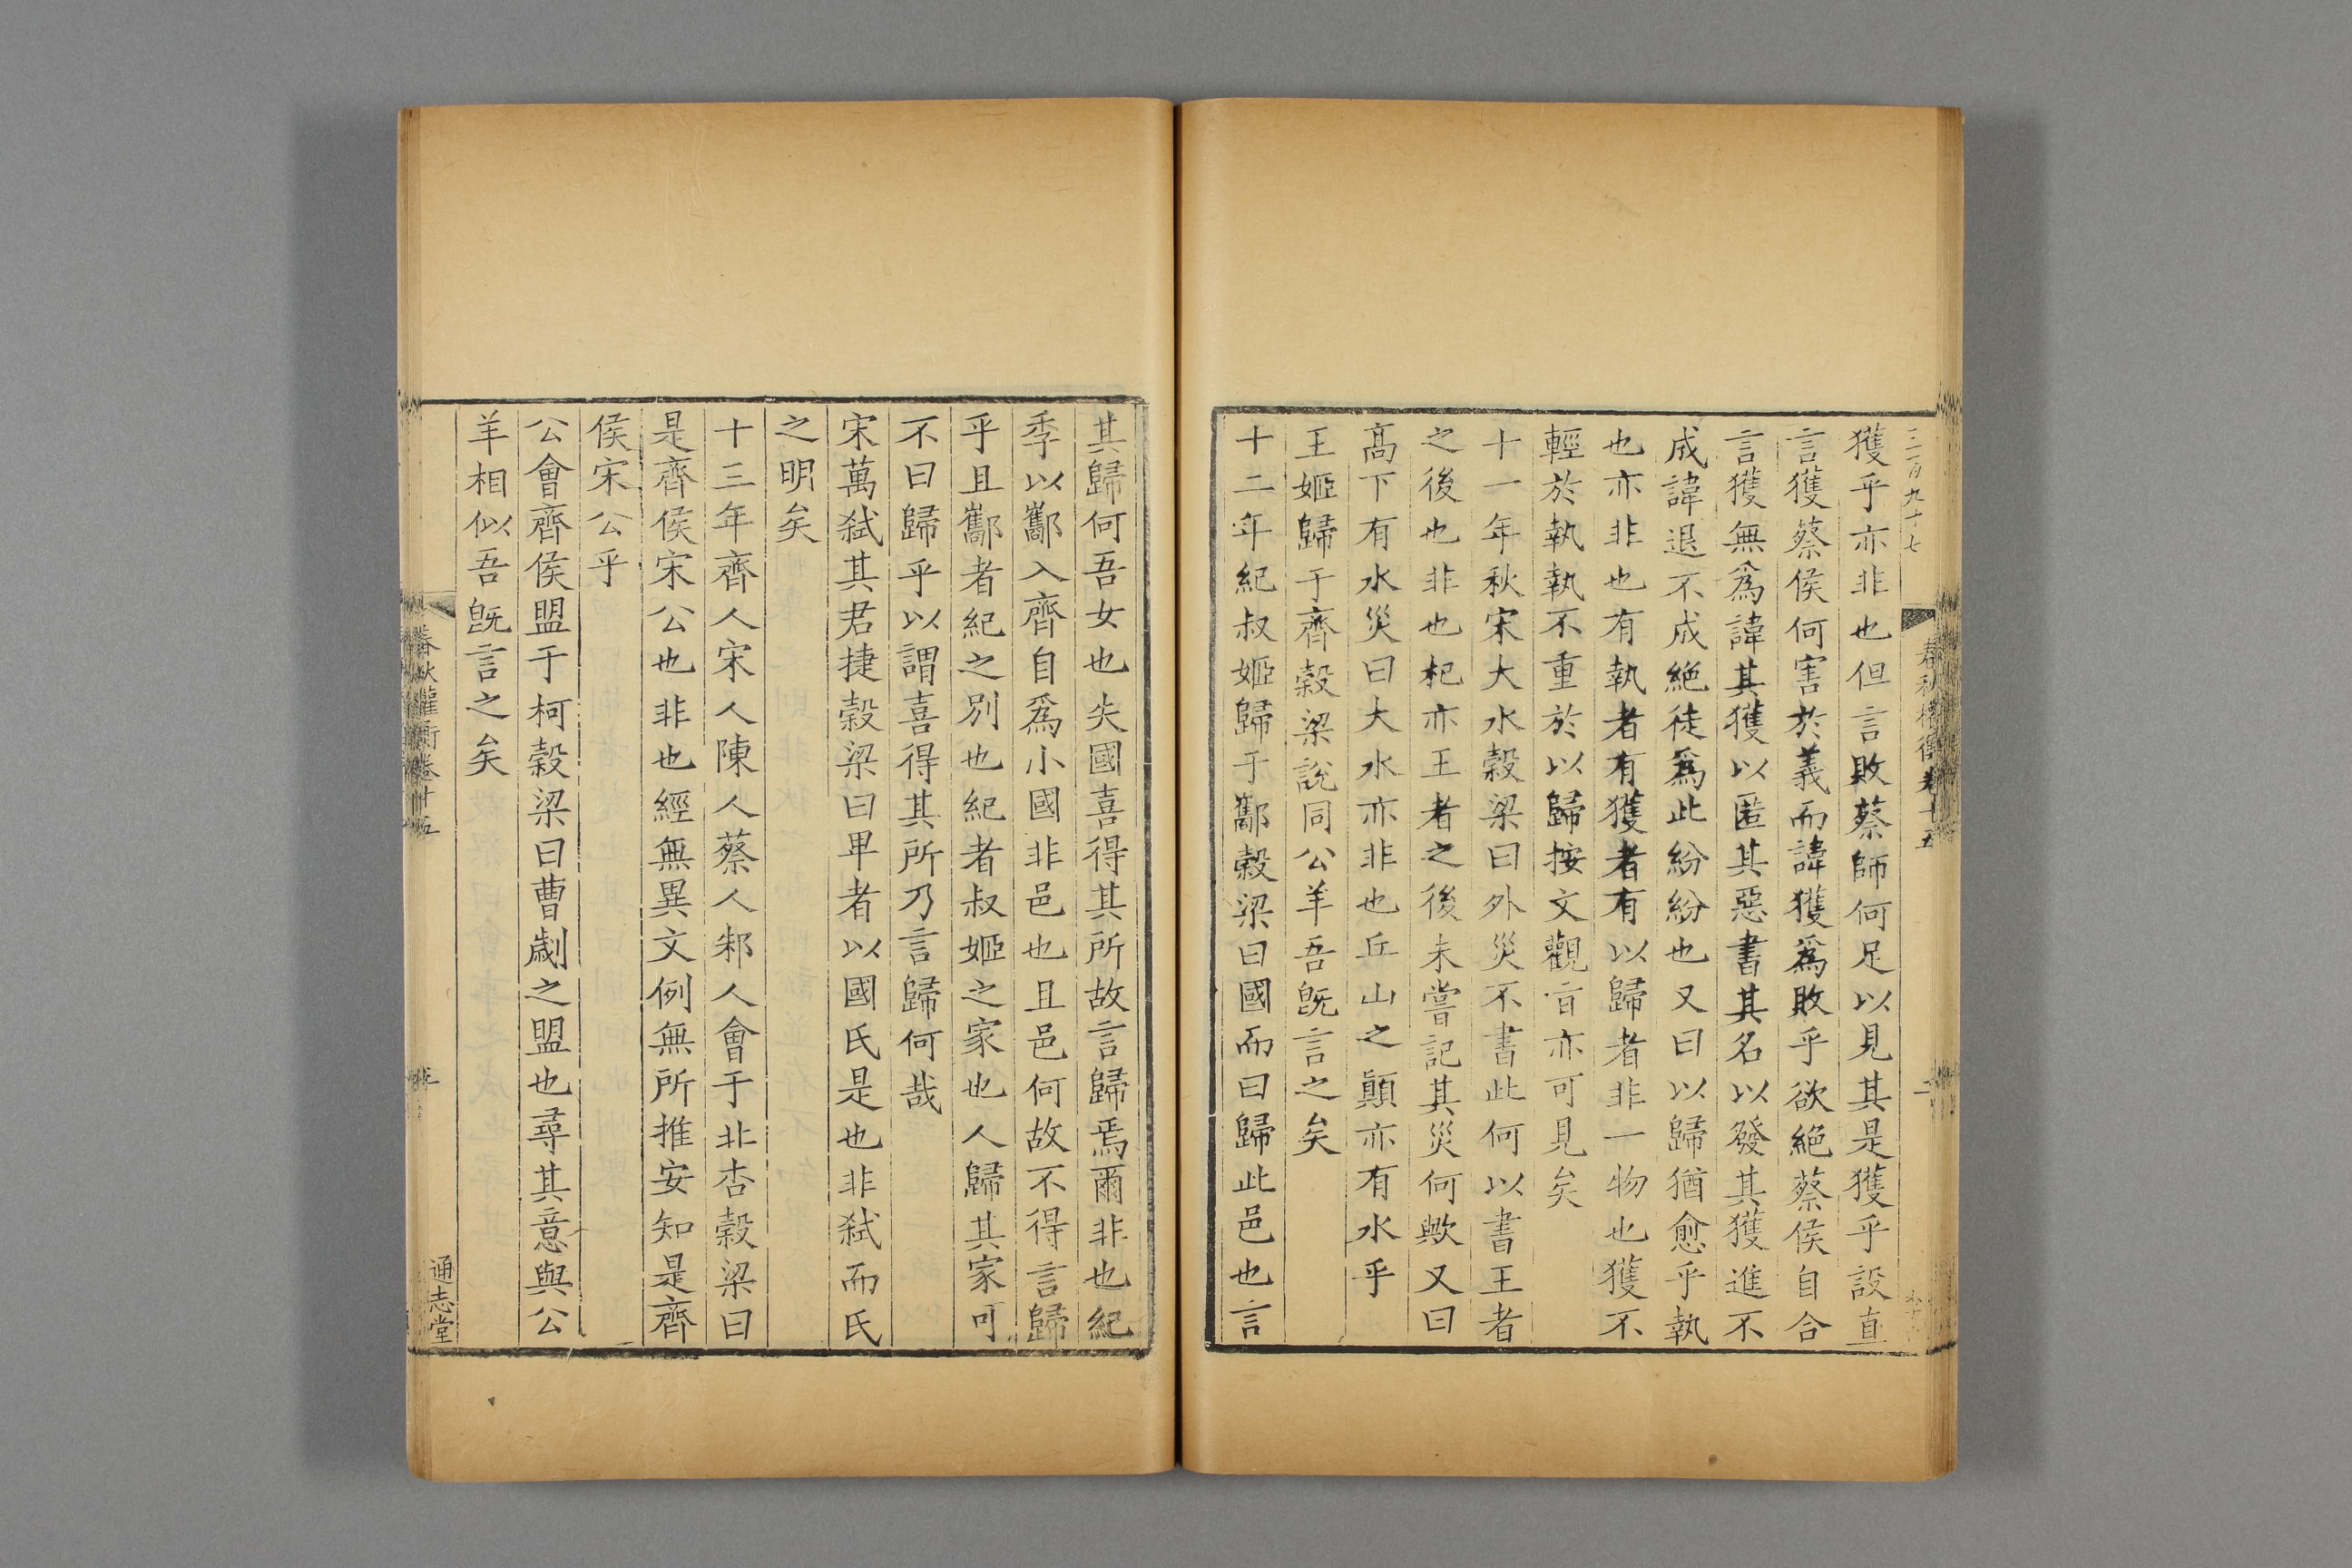 三百九十七
春秋權衡卷十五
二
獲乎亦非也但言敗蔡師何足以見其是獲乎設直
言獲蔡侯何害於義而諱獲爲敗乎欲絶蔡侯自合
言獲無爲諱其獲以匿其惡書其名以發其獲進不
成諱退不成絶徒爲此紛紛也又曰以歸猶愈乎執
也亦非也有執者有獲者有以歸者非一物也獲不
輕於執執不重於以歸按文觀㫖亦可見矣
十一年秋宋大水穀梁曰外災不書此何以書王者
之後也非也杞亦王者之後未嘗記其災何歟又曰
髙下有水災曰大水亦非也丘山之顛亦有水乎
王姬歸于齊穀梁說同公羊吾旣言之矣
十二年紀叔姬歸于酅穀梁曰國而曰歸此邑也言
其歸何吾女也失國喜得其所故言歸焉爾非也紀
季以酅入齊自爲小國非邑也且邑何故不得言歸
乎且酅者紀之別也紀者叔姬之家也人歸其家可
不曰歸乎以謂喜得其所乃言歸何哉
宋萬弑其君捷穀梁曰卑者以國氏是也非弑而氏
之明矣
十三年齊人宋人陳人蔡人邾人會于北杏穀梁曰
是齊侯宋公也非也經無異文例無所推安知是齊
侯宋公乎
公會齊侯盟于柯穀梁曰曹劌之盟也尋其意與公
羊相似吾旣言之矣
春秋權衡卷十五
通志堂